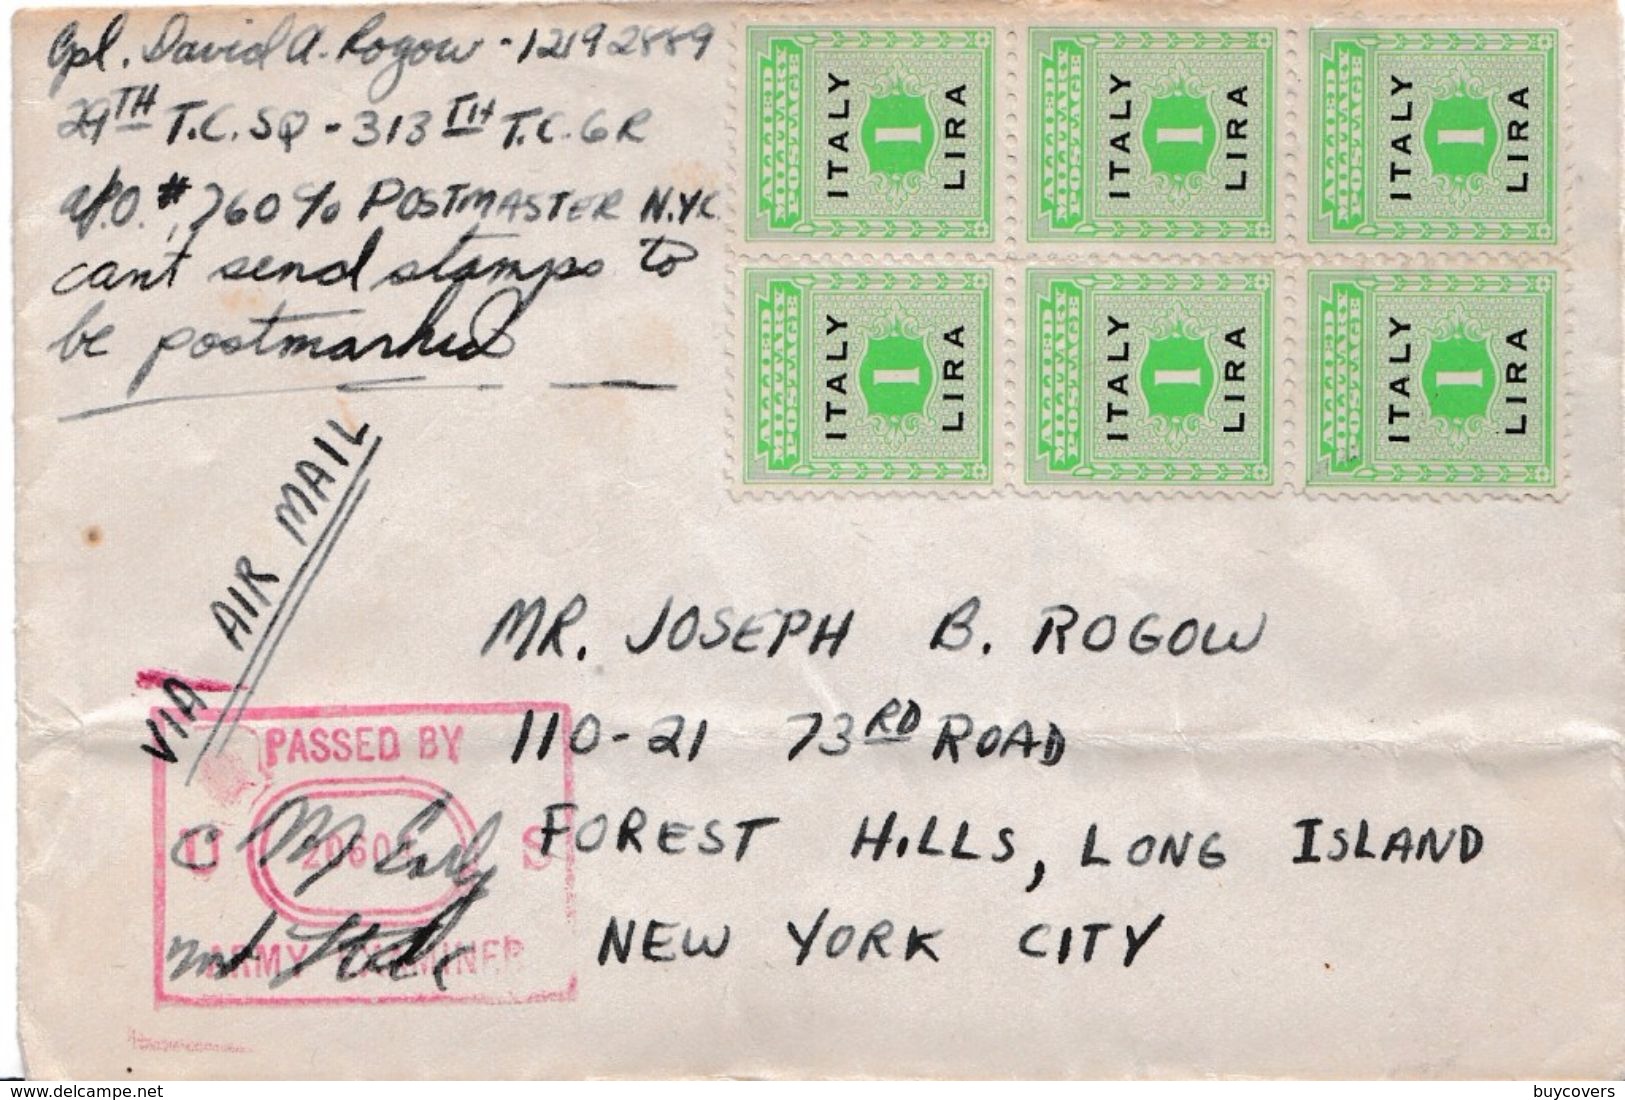 Cpl. David A. Rogow - 12192889
29TH T.C. SQ - 313TH T.C. GR
A.P.O. #, 760 % POSTMASTER N.Y.C.
can't send stamps to
be postmarked
ALLIED MILITARY POSTAGE ITALY 1 LIRA
ALLIED MILITARY POSTAGE ITALY 1 LIRA
ALLIED MILITARY POSTAGE ITALY 1 LIRA
ALLIED MILITARY POSTAGE ITALY 1 LIRA
ALLIED MILITARY POSTAGE ITALY 1 LIRA
ALLIED MILITARY POSTAGE ITALY 1 LIRA
VIA AIR MAIL
MR. JOSEPH B. ROGOW
110-21 73RD ROAD
FOREST HILLS, LONG ISLAND
NEW YORK CITY
PASSED BY
U 20604 S
ARMY EXAMINER
www.delcampe.net
buycovers